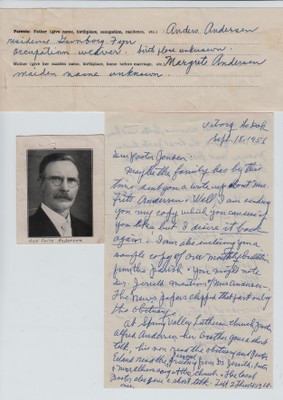 Parents: Father (give name, birthplace, occupation, residence, etc.) Anders Andersen
residence Svinborg Fyn
occupation weaver. birth place unknown.
Mother (give her maiden name, birthplace, home before marriage, etc.) Margrete Andersen
maiden name unknown
Viborg So Dak
Sept. 18, 1958
Dear Pastor Jensen:
Maybe the family has by this
time sent you a write up about Mrs.
Andersen. Well I am sending
you my copy which you can use if
you like but I desire it back
again. I am also enclosing you a
sample copy of our monthly bulletin
from the Parish. You might note
Mrs. Andersen.
The news papers skipped that part only
the obituary.
At Spring Valley Lutheran Church Pastor
Alfred Andersen her brother gave a short
talk, his son read the obituary and Pastor
read the greeting from
The local
Pastor also gave a short talk.